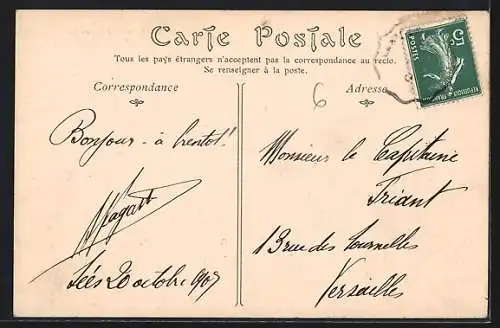 Carte Postale
Tous les pays étrangers n'acceptent pas la correspondance au recto.
Se renseigner à la poste.
Correspondance
Adresse
6
5c
POSTES
Bonjour - à bientot!
Monsieur le Capitaine
Friant
13 rue des Tournelles
Versailles
Sées 20 octobre 1907